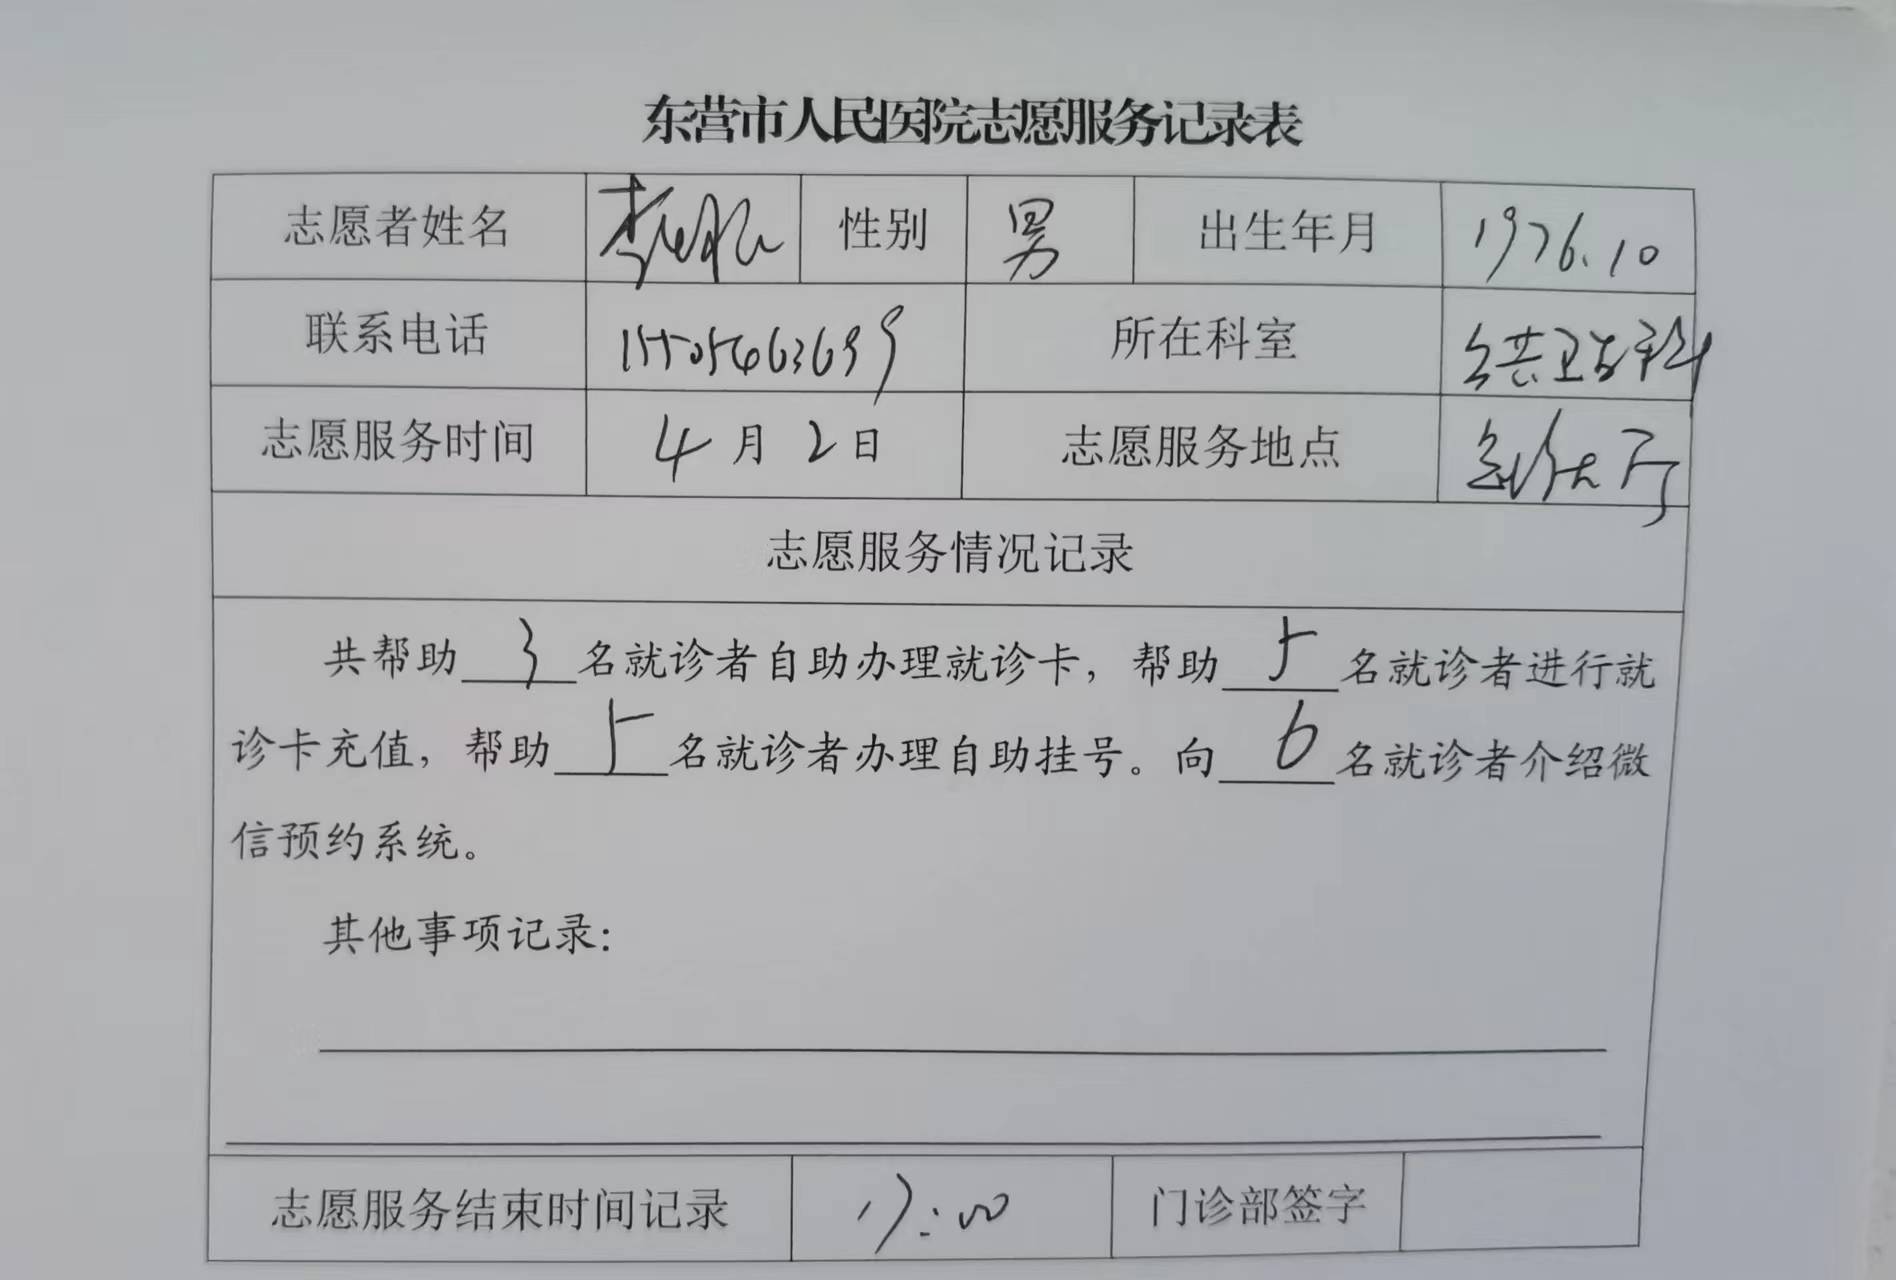 东营市人民医院志愿服务记录表
志愿者姓名 李 性别 男 出生年月 1976.10
联系电话 15505463699 所在科室 公共卫生科
志愿服务时间 4月2日 志愿服务地点 急诊大厅
志愿服务情况记录
共帮助3名就诊者自助办理就诊卡，帮助5名就诊者进行就
诊卡充值，帮助5名就诊者办理自助挂号。向6名就诊者介绍微
信预约系统。
其他事项记录：
志愿服务结束时间记录 17:00 门诊部签字